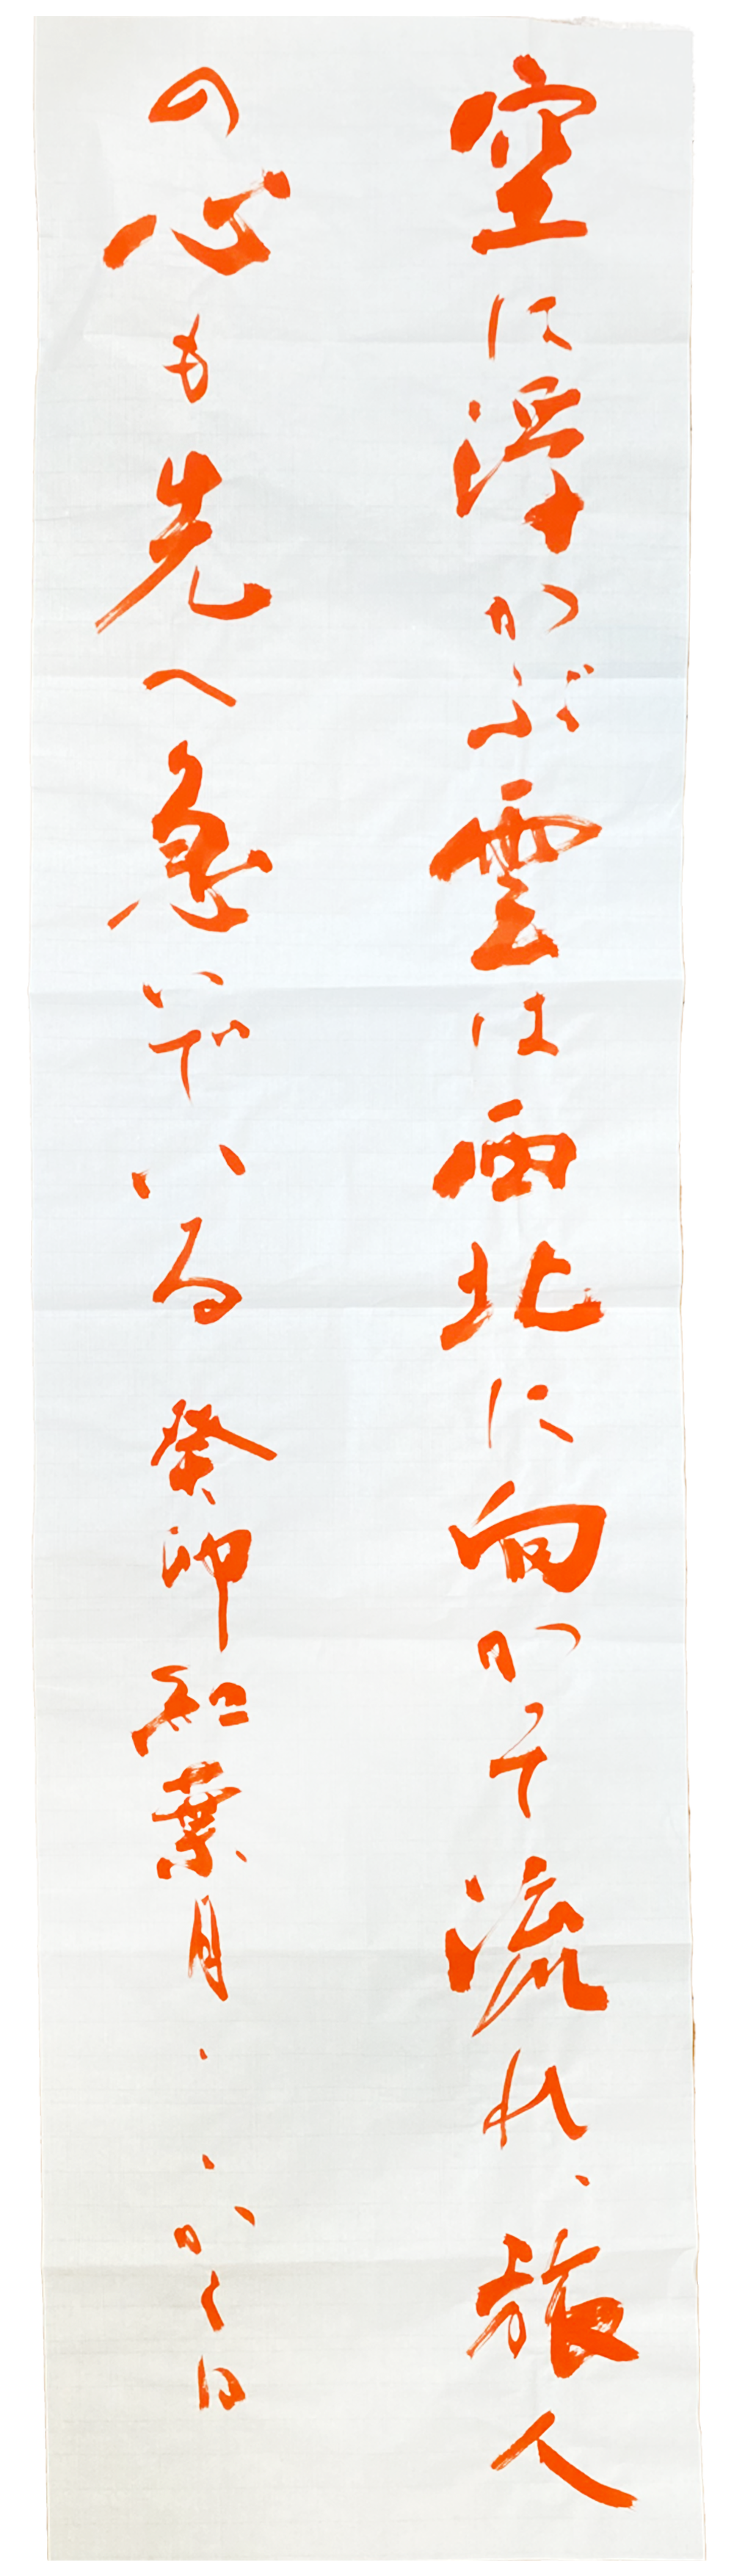 空に浮かぶ雲は西北に向かって流れ、旅人
の心も先へ急いでいる 癸卯紅葉月